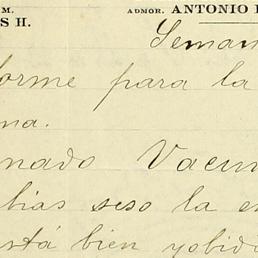 M. ADMOR. ANTONIO
S H.
Seman
orme para la
na.
nado Vacun
bias seso la en
está bien y